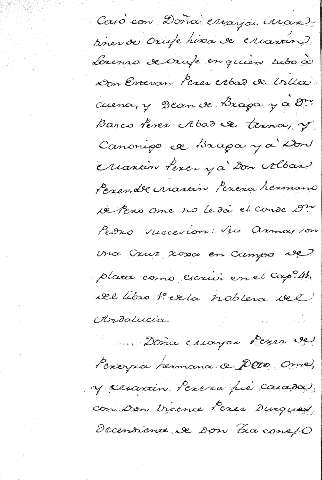 Casó con Doña Mayor Mar-
tines de Orufe hixa de Martín
Lorenzo de Orufe en quien tubo â
Don Estevan Perez Abad de Villa
cueva, y Dean de Braga y â Dn
Barco Perez Abad de Terna, y
Canonigo de Braga y â Don
Martín Perez y â Don Albar
Perez. De Martín Pereira hermano
de Pero Ome no le dâ el conde Dn
Pedro succesion: sus Armas son
una Cruz roxa en campo de
plata como escrivi en el Capº 41,
del libro 1º de la nobleza del
Andalucia.
Doña Mayor Perez de
Pereyra hermana de Pero Ome,
y Martin Pereira fue casada,
con Don Vicente Perez
Decendiente de Don